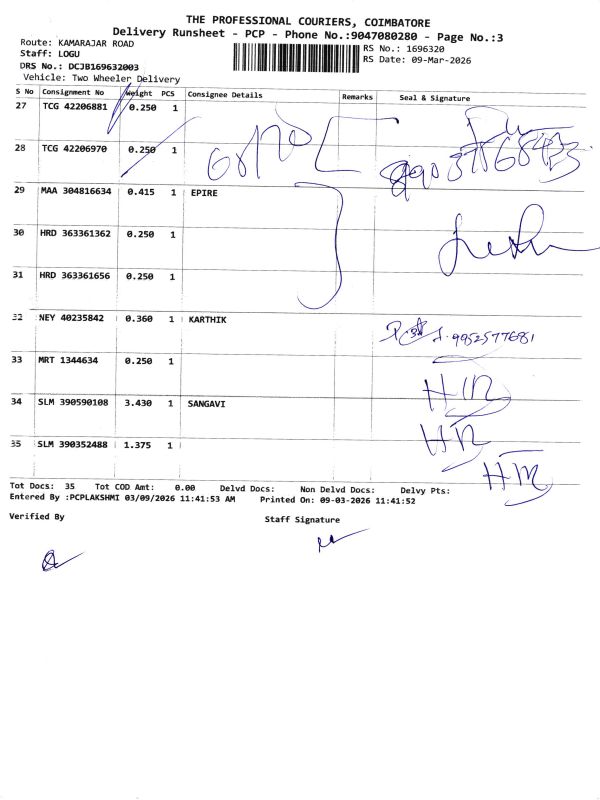 THE PROFESSIONAL COURIERS, COIMBATORE
Delivery Runsheet - PCP - Phone No.:9047080280 - Page No.:3
Route: KAMARAJAR ROAD
RS No.: 1696320
Staff: LOGU
RS Date: 09-Mar-2026
DRS No.: DCJB169632003
Vehicle: Two Wheeler Delivery
S No Consignment No Weight PCS Consignee Details Remarks Seal & Signature
27 TCG 42206881 0.250 1
28 TCG 42206970 0.250 1
29 MAA 304816634 0.415 1 EPIRE
30 HRD 363361362 0.250 1
31 HRD 363361656 0.250 1
32 NEY 40235842 0.360 1 KARTHIK 9952577681
33 MRT 1344634 0.250 1
34 SLM 390590108 3.430 1 SANGAVI
35 SLM 390352488 1.375 1
Tot Docs: 35 Tot COD Amt: 0.00 Delvd Docs: Non Delvd Docs: Delvy Pts:
Entered By :PCPLAKSHMI 03/09/2026 11:41:53 AM Printed On: 09-03-2026 11:41:52
Verified By
Staff Signature